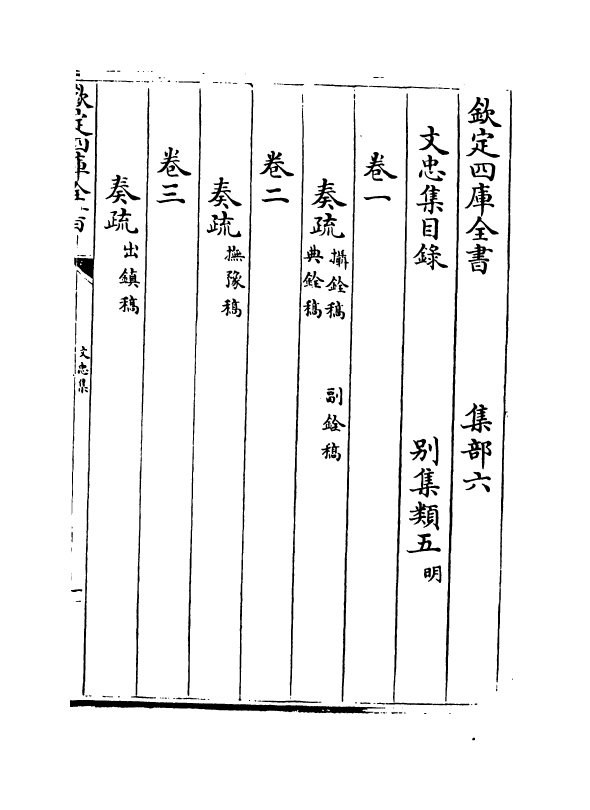 欽定四庫全書 集部六
文忠集目錄 别集類五明
卷一
奏疏攝銓稿 副銓稿
典銓稿
卷二
奏疏撫豫稿
卷三
奏疏出鎮稿
欽定四庫全書
文忠集
一